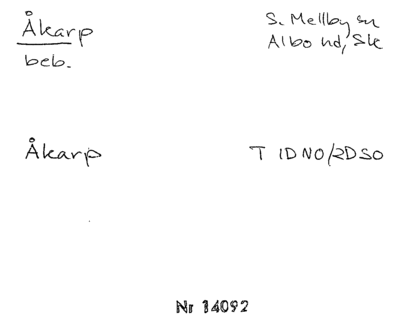 Åkarp
S. Mellby sn
beb.
Albo hd, Sk
Åkarp
T 1DNO/2DSO
Nr 14092